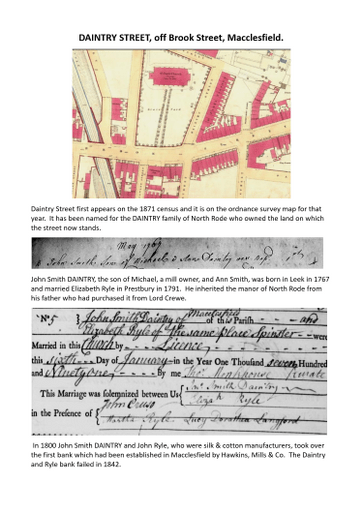 DAINTRY STREET, off Brook Street, Macclesfield.
Daintry Street first appears on the 1871 census and it is on the ordnance survey map for that
year. It has been named for the DAINTRY family of North Rode who owned the land on which
the street now stands.
May 1767
John Smith Son of Michael & Ann Daintry
John Smith DAINTRY, the son of Michael, a mill owner, and Ann Smith, was born in Leek in 1767
and married Elizabeth Ryle in Prestbury in 1791. He inherited the manor of North Rode from
his father who had purchased it from Lord Crewe.
No 5 John Smith Daintry of Macclesfield
of this Parish and
Elizabeth Ryle of the same place Spinster were
Married in this Church by Licence
this sixth Day of January in the Year One Thousand seven Hundred
and Ninety one By me Thos Monkhouse Curate
This Marriage was solemnized between Us { Jno Smith Daintry
Elizth Ryle
in the Presence of { John Cruso
Martha Ryle Lucy Dorothea Langford
In 1800 John Smith DAINTRY and John Ryle, who were silk & cotton manufacturers, took over
the first bank which had been established in Macclesfield by Hawkins, Mills & Co. The Daintry
and Ryle bank failed in 1842.